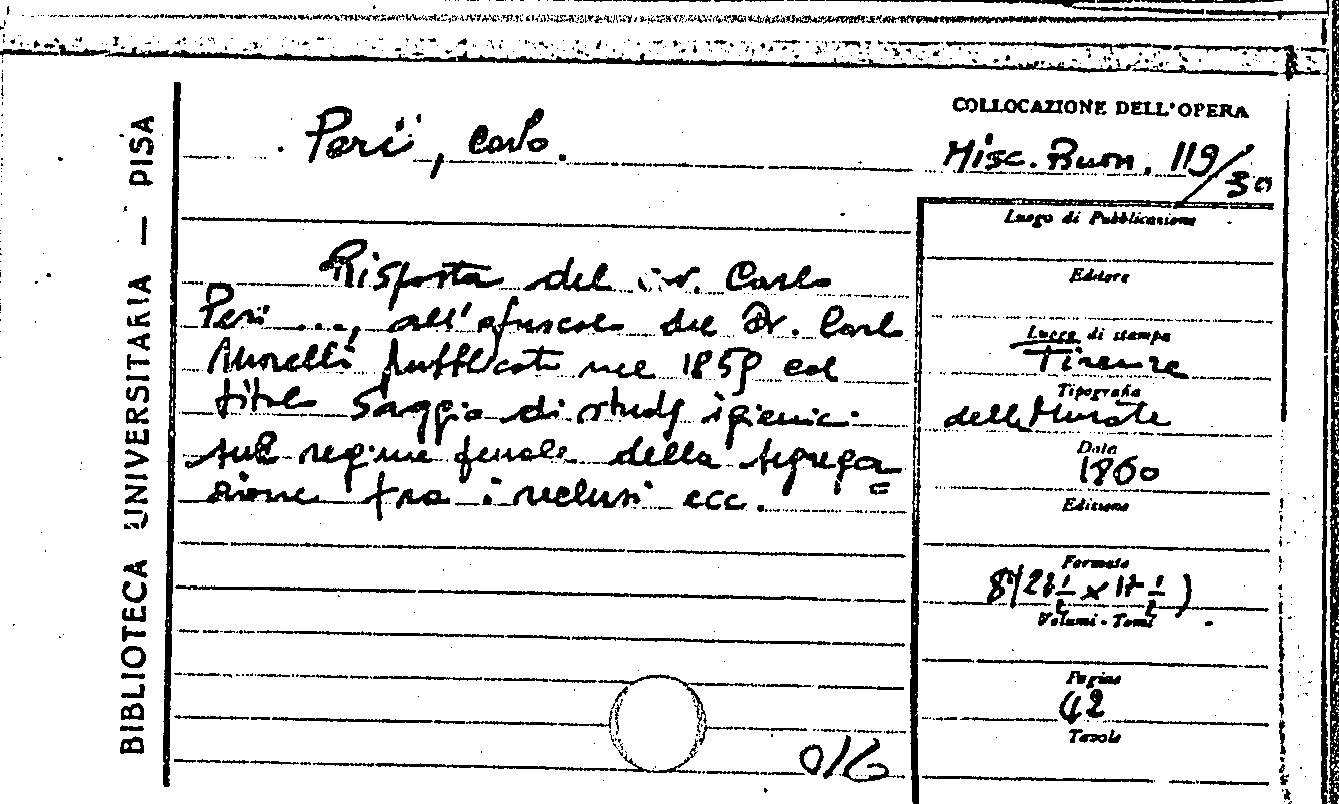 BIBLIOTECA UNIVERSITARIA — PISA
Peri, Carlo.
Risposta del Carlo
Peri ..., all'opuscolo del Dr. Carlo
Morelli pubblicato nel 1859 col
titolo Saggio di studj igienici
sul regime penale della segrega=
zione fra i reclusi ecc.
O/G
COLLOCAZIONE DELL'OPERA
Misc. Buon. 119/30
Luogo di Pubblicazione
Editore
Luogo di stampa
Firenze
Tipografia
delle Murate
Data
1860
Edizione
Formato
8°
Volumi - Tomi
Pagine
42
Tavole